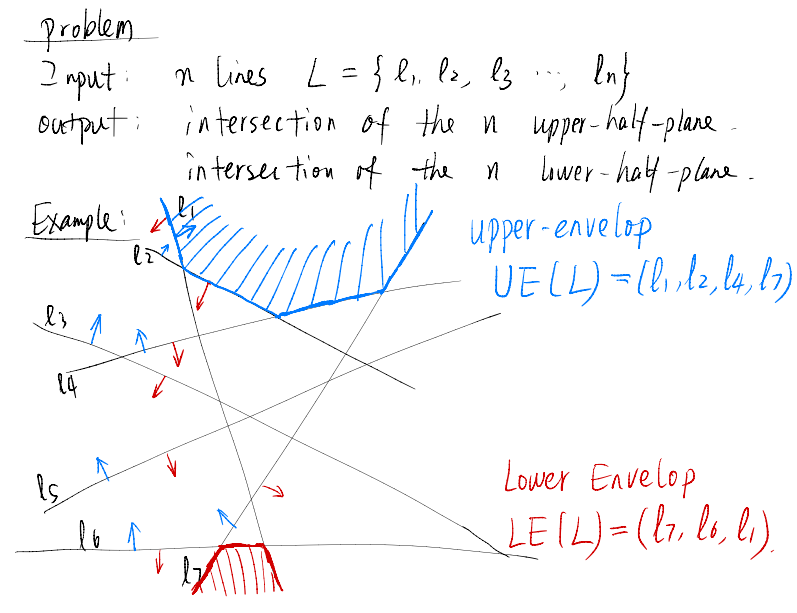 problem
Input: n lines L = { l1, l2, l3 ..., ln}
output: intersection of the n upper-half-plane.
intersection of the n lower-half-plane.
Example:
l1
l2
upper-envelop
UE(L)=(l1,l2,l4,l7)
l3
l4
l5
Lower Envelop
LE(L)=(l7, l6, l1).
l6
l7